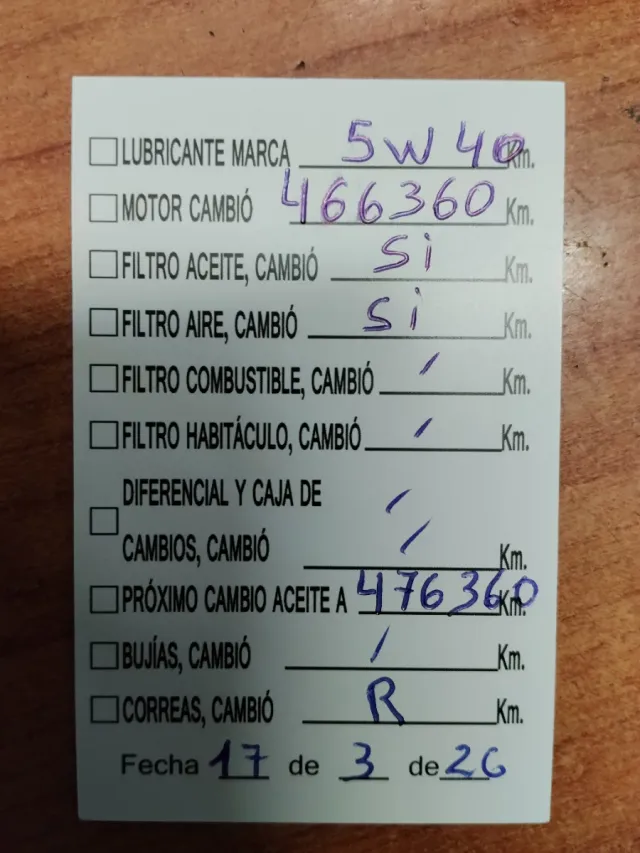 LUBRICANTE MARCA 5W40 Km.
MOTOR CAMBIÓ 466360 Km.
FILTRO ACEITE, CAMBIÓ Si Km.
FILTRO AIRE, CAMBIÓ Si Km.
FILTRO COMBUSTIBLE, CAMBIÓ / Km.
FILTRO HABITÁCULO, CAMBIÓ / Km.
DIFERENCIAL Y CAJA DE /
CAMBIOS, CAMBIÓ / Km.
PRÓXIMO CAMBIO ACEITE A 476360 Km.
BUJÍAS, CAMBIÓ / Km.
CORREAS, CAMBIÓ R Km.
Fecha 17 de 3 de 26